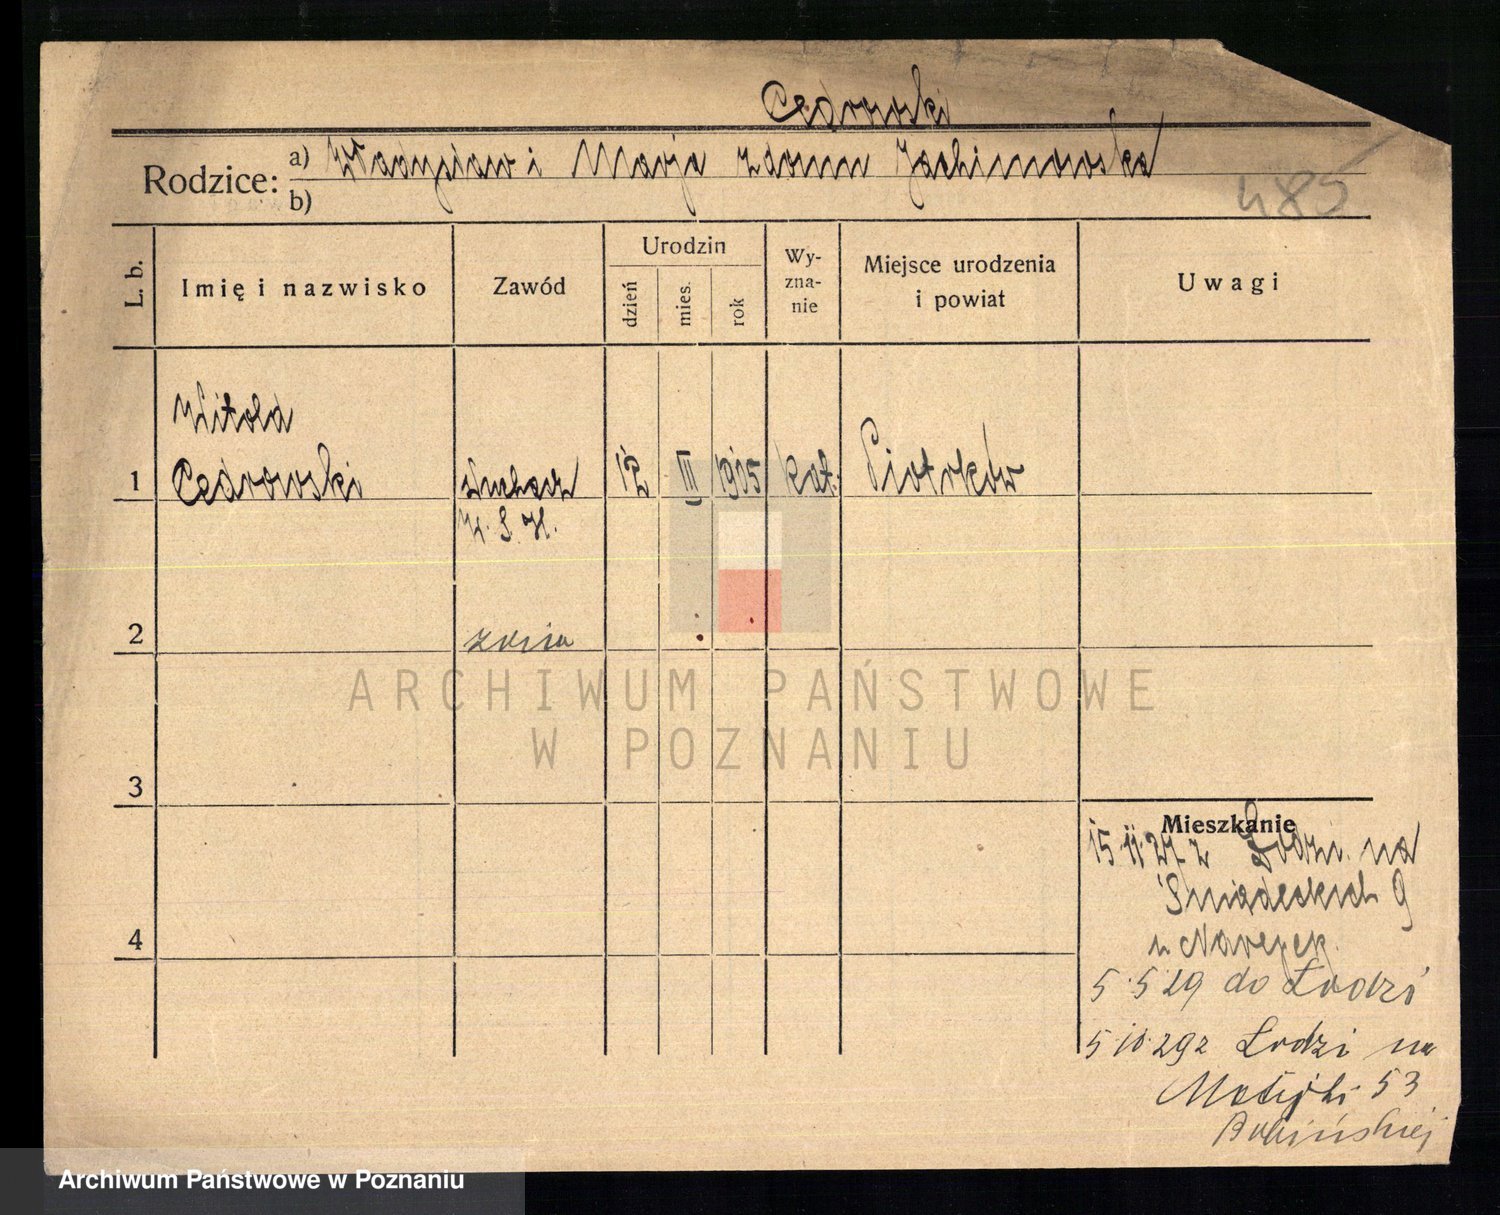 Cedrowski
Rodzice: a) Władysław i Marja z domu Jachimowska
b)
485
L. b.
Imię i nazwisko
Zawód
Urodzin
dzień
mies.
rok
Wy-
zna-
nie
Miejsce urodzenia
i powiat
Uwagi
Witold
1 Cedrowski słuchacz 12 III 1905 kat. Piotrków
W. S. H.
2
3
4
Mieszkanie
15.11.27 z Łodzi na
Śniadeckich 9
u
5.5 29 do Łodzi
5.10.29 z Łodzi na
Matejki 53
ARCHIWUM PAŃSTWOWE
W POZNANIU
Archiwum Państwowe w Poznaniu